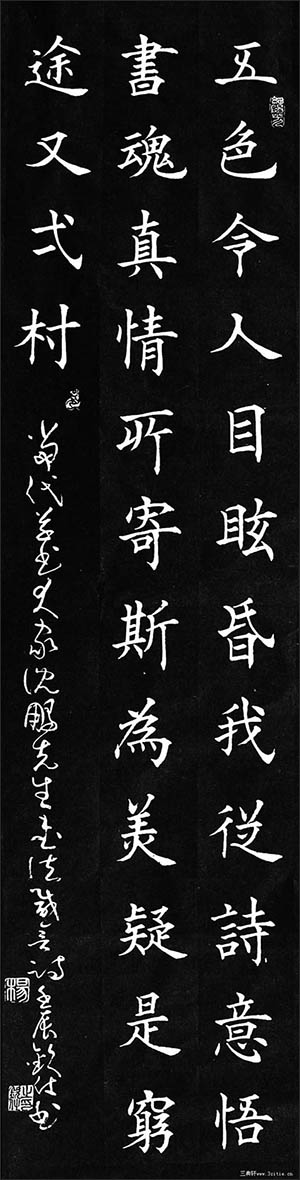 五色令人目眩昏我從詩意悟
書魂真情所寄斯為美疑是窮
途又弌村
當代草書大家沈鵬先生書法感言詩壬辰欽仕書
楊